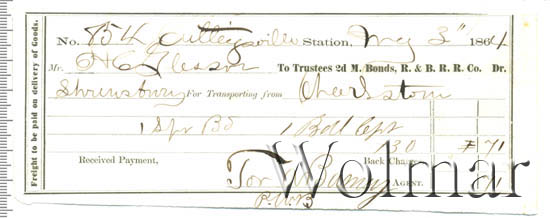 Freight to be paid on delivery of Goods.
No. 854 Cuttingsville Station, May 3" 1864
Mr. To Trustees 2d M. Bonds, R. & B. R. R. Co. Dr.
Shrewsbury For Transporting from Charlestown
1 Spr Bd 1 Bdl
30 71
Received Payment, Back Charges
For AGENT.
Wolmar